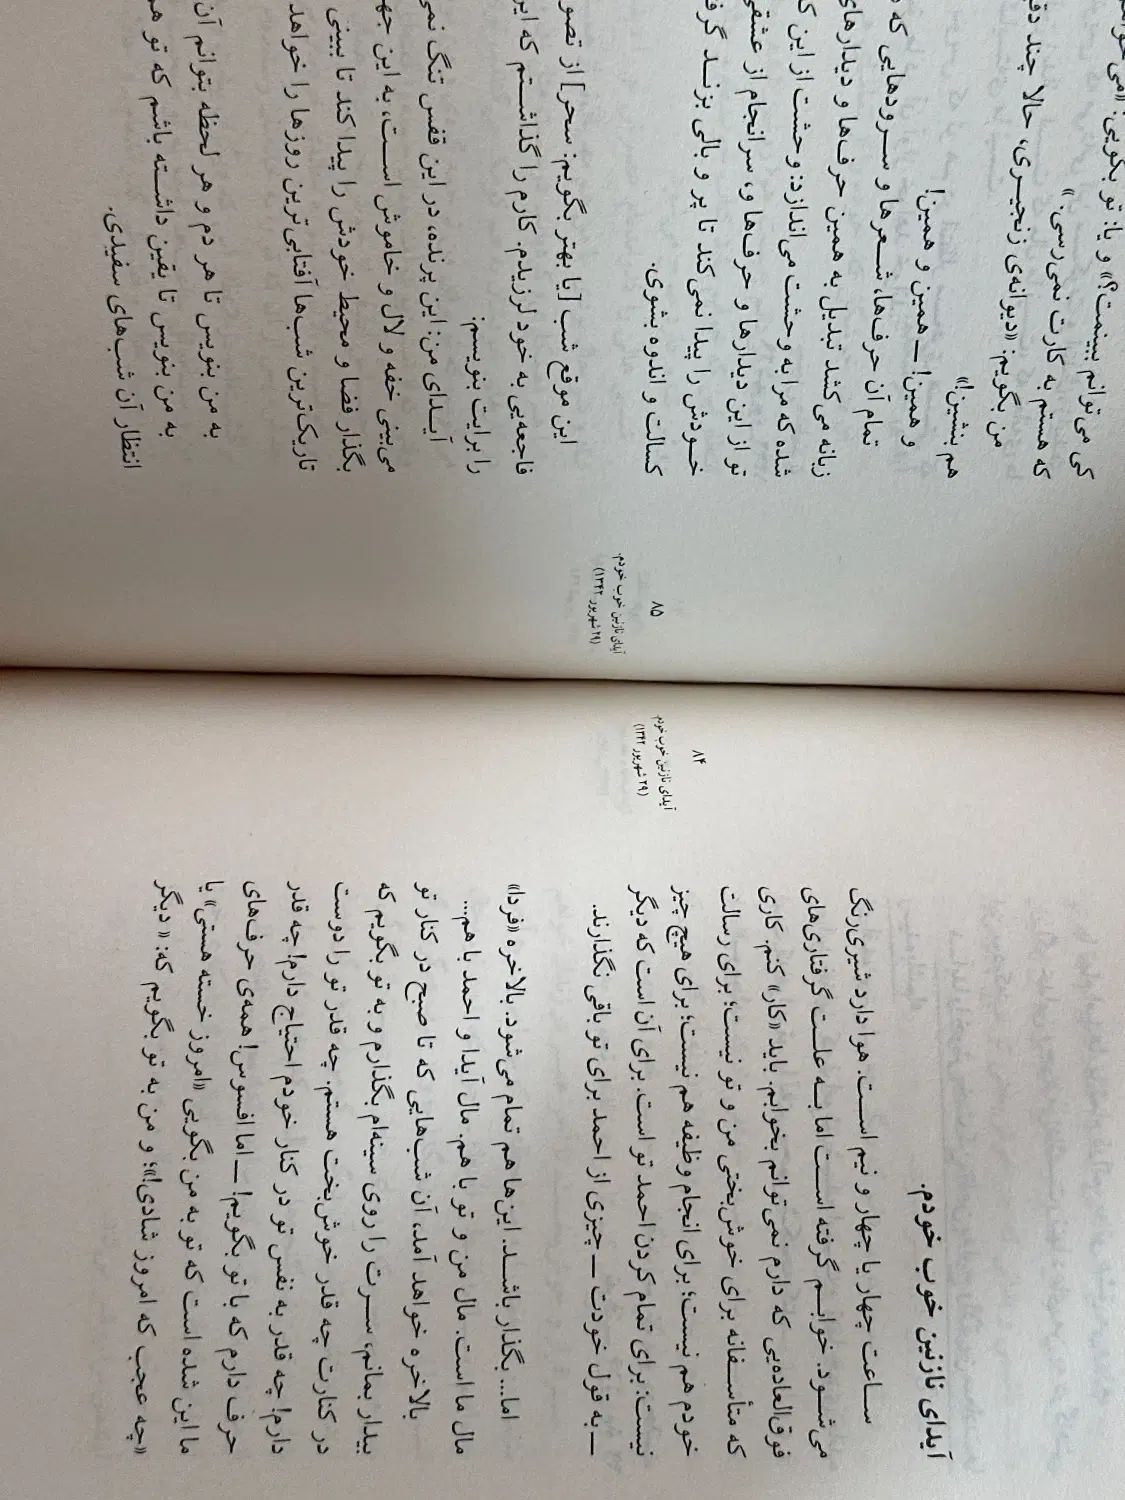 آیدای نازنین خوب خودم.
ساعت چهار یا چهار و نیم است. هوا دارد شیری‌رنگ
می‌شود. خوابم گرفته است اما به علت گرفتاری‌های
فوق‌العاده‌یی که دارم نمی‌توانم بخوابم. باید «کار» کنم. کاری
که متأسفانه برای خوش‌بختی من و تو نیست؛ برای رسالت
خودم هم نیست؛ برای انجام وظیفه هم نیست؛ برای هیچ چیز
نیست: برای تمام کردن احمد تو است. برای آن است که دیگر
— به قول خودت — چیزی از احمد برای تو باقی نگذارند.
اما... بگذار باشد. این‌ها هم تمام می‌شود. بالاخره «فردا»
مال ما است. مال من و تو با هم. مال آیدا و احمد با هم...
بالاخره خواهد آمد، آن شب‌هایی که تا صبح در کنار تو
بیدار بمانم، سرت را روی سینه‌ام بگذارم و به تو بگویم که
در کنارت چه قدر خوش‌بخت هستم. چه قدر تو را دوست
دارم! چه قدر به نفس تو در کنار خودم احتیاج دارم! چه قدر
حرف دارم که با تو بگویم! — اما افسوس! همه‌ی حرف‌های
ما این شده است که تو به من بگویی «امروز خسته هستی» یا
«چه عجب که امروز شادی!»؛ و من به تو بگویم که: «دیگر
۸۴
آیدای نازنین خوب خودم
(۲۹ شهریور ۱۳۴۲)
کی می‌توانم ببینمت؟» و یا: تو بگویی:
که هستم به کارت نمی‌رسی.»
من بگویم: «دیوانه‌ی زنجیری، حالا چند
هم بنشین!»
و همین! — همین و همین!
تمام آن حرف‌ها، شعرها و سرودهایی که
زبانه می‌کشد تبدیل به همین حرف‌ها و دیدارهای
شده که مرا به وحشت می‌اندازد: وحشت از این
تو از این دیدارها و حرف‌ها و، سرانجام از عشقی
خودش را پیدا نمی‌کند تا پر و بالی بزند
کسالت و اندوه بشوی.
این موقع شب [یا بهتر بگویم: سحر] از
فاجعه‌یی به خود لرزیدم. کارم را گذاشتم که
را برایت بنویسم:
آیدای من: این پرنده، در این قفس تنگ
می‌بینی خفه و لال و خاموش است، به این
بگذار فضا و محیط خودش را پیدا کند تا ببینی
تاریک‌ترین شب‌ها آفتابی‌ترین روزها را خواهد
به من بنویس تا هر دم و هر لحظه بتوانم آن
به من بنویس تا یقین داشته باشم که تو
انتظار آن شب‌های سفیدی.
۸۵
آیدای نازنین خوب خودم.
(۲۹ شهریور ۱۳۴۲)